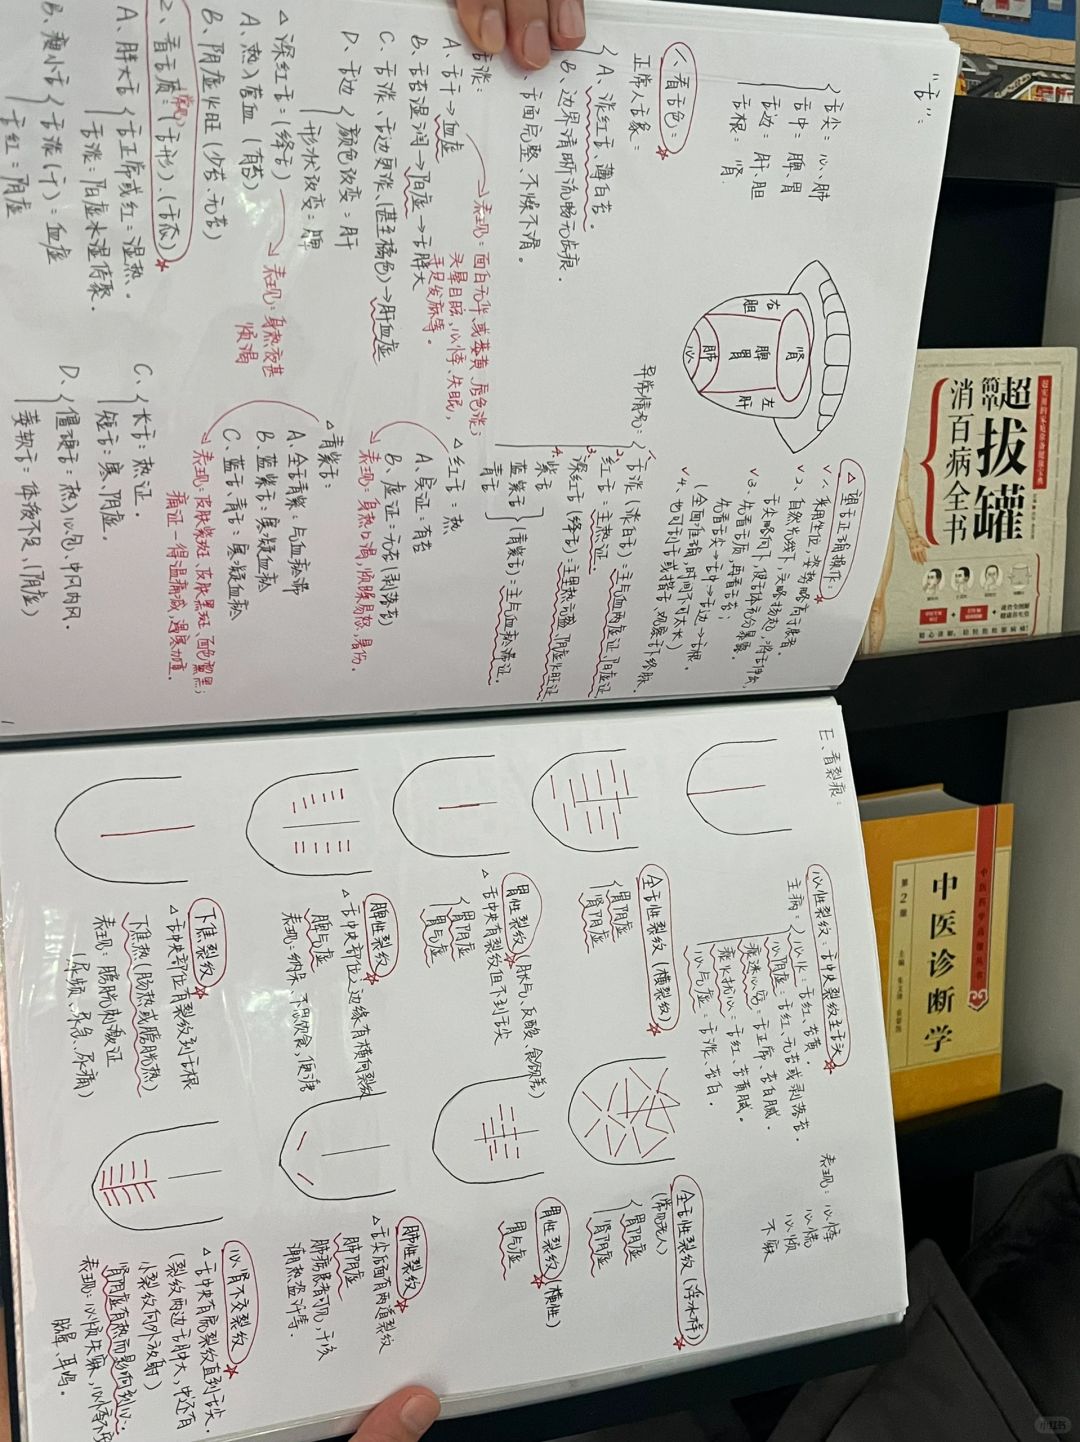 “舌”：
舌尖：心、肺
舌中：脾、胃
舌边：肝、胆
舌根：肾
肾
右
左
胆
脾
胃
肝
肺
心
△望舌正确操作：
√1、采用坐位，姿势略高于患者。
√2、自然光线下，头略扬起，将舌伸出，
舌尖略向下，使舌体充分暴露。
√3、先看舌质，再看舌苔；
先看舌尖→舌中→舌边→舌根。
(全面准确，时间不可太长)
√4、也可刮舌或揩舌、观察舌下络脉。
1、看舌色：
正常人舌象：
A、淡红舌、薄白苔。
B、边界清晰流畅无齿痕。
、舌面完整、不燥不滑。
异常情况：
1、舌淡(淡白舌)：主气血两虚证、阳虚证
2、红舌：主热证。
3、深红舌(绛舌)：主里热亢盛、阴虚火旺证
4、紫舌
蓝紫舌
青舌
(青紫舌)：主气血瘀滞证。
舌淡：
A、舌干→血虚
表现：面白无华或萎黄、唇色淡；
头晕目眩，心悸、失眠，
手足发麻等。
B、舌苔湿润→阳虚→舌胖大
C、舌淡、舌边更淡、(甚至橘色)→肝血虚
D、舌边
颜色改变=肝
形状改变=脾
△红舌：热
A、实证=有苔
B、虚证=无苔(剥落苔)
表现：身热口渴，烦躁易怒，易伤。
△深红舌：(绛舌)
A、热入营血(有苔)
B、阴虚火旺(少苔、无苔)
表现：身热夜甚
烦渴
△青紫舌：
A、全舌青紫：与血瘀滞
B、蓝紫舌：寒凝血瘀
C、蓝舌、青舌：寒凝血瘀
表现：皮肤紫斑、皮肤黑斑、面色黧黑；
痛证—得温痛减，遇寒加重。
2、看舌质：(舌形)、(舌态)
A、胖大舌
舌正常或红=湿热。
舌淡：阳虚水湿停聚。
B、瘦小舌
舌淡(干)=血虚
舌红=阴虚
C、
长舌：热证。
短舌：寒、阴虚。
D、
僵硬舌：热入心包、中风内风。
萎软舌：体液不足、(阴虚)
1
E、看裂痕：
心性裂纹：舌中央裂纹至舌尖
主病：
心火：舌红、苔黄。
心阴虚：舌红、无苔或剥落苔。
痰迷心窍：舌正常、苔白腻。
痰火扰心：舌红、苔黄腻。
心气虚：舌淡、苔白。
表现：心悸
心慌
心烦
不寐
全舌性裂纹(横裂纹)
胃阴虚
肾阴虚
全舌性裂纹(浮冰样)
(常见老人)
胃阴虚
肾阴虚
胃性裂纹(胀气、反酸、食欲差)
△舌中央有裂纹但不到舌尖
胃阴虚
胃气虚
胃性裂纹(横性)
胃气虚
脾性裂纹
△舌中央部位之边缘有横向裂纹
脾气虚
表现：纳呆、不思饮食，便溏
肺性裂纹
△舌尖后面有两道裂纹
肺阴虚
肺病患者可见，干咳
潮热盗汗等。
下焦裂纹
△舌中央部位有裂纹到舌根
下焦热(肠热或膀胱热)
表现：膀胱刺激证
(尿频、尿急、尿痛)
心肾不交裂纹
△舌中央有底裂纹直到舌尖。
(裂纹两边舌肿大，中还有
小裂纹向外放射)
肾阴虚有热而影响到心。
表现：心烦失寐，心悸不
眩晕、耳鸣。
超实用的家庭养生健康宝典
超
简单
拔罐
消百病全书
中医药学高级丛书
中医诊断学
第2版
小红书